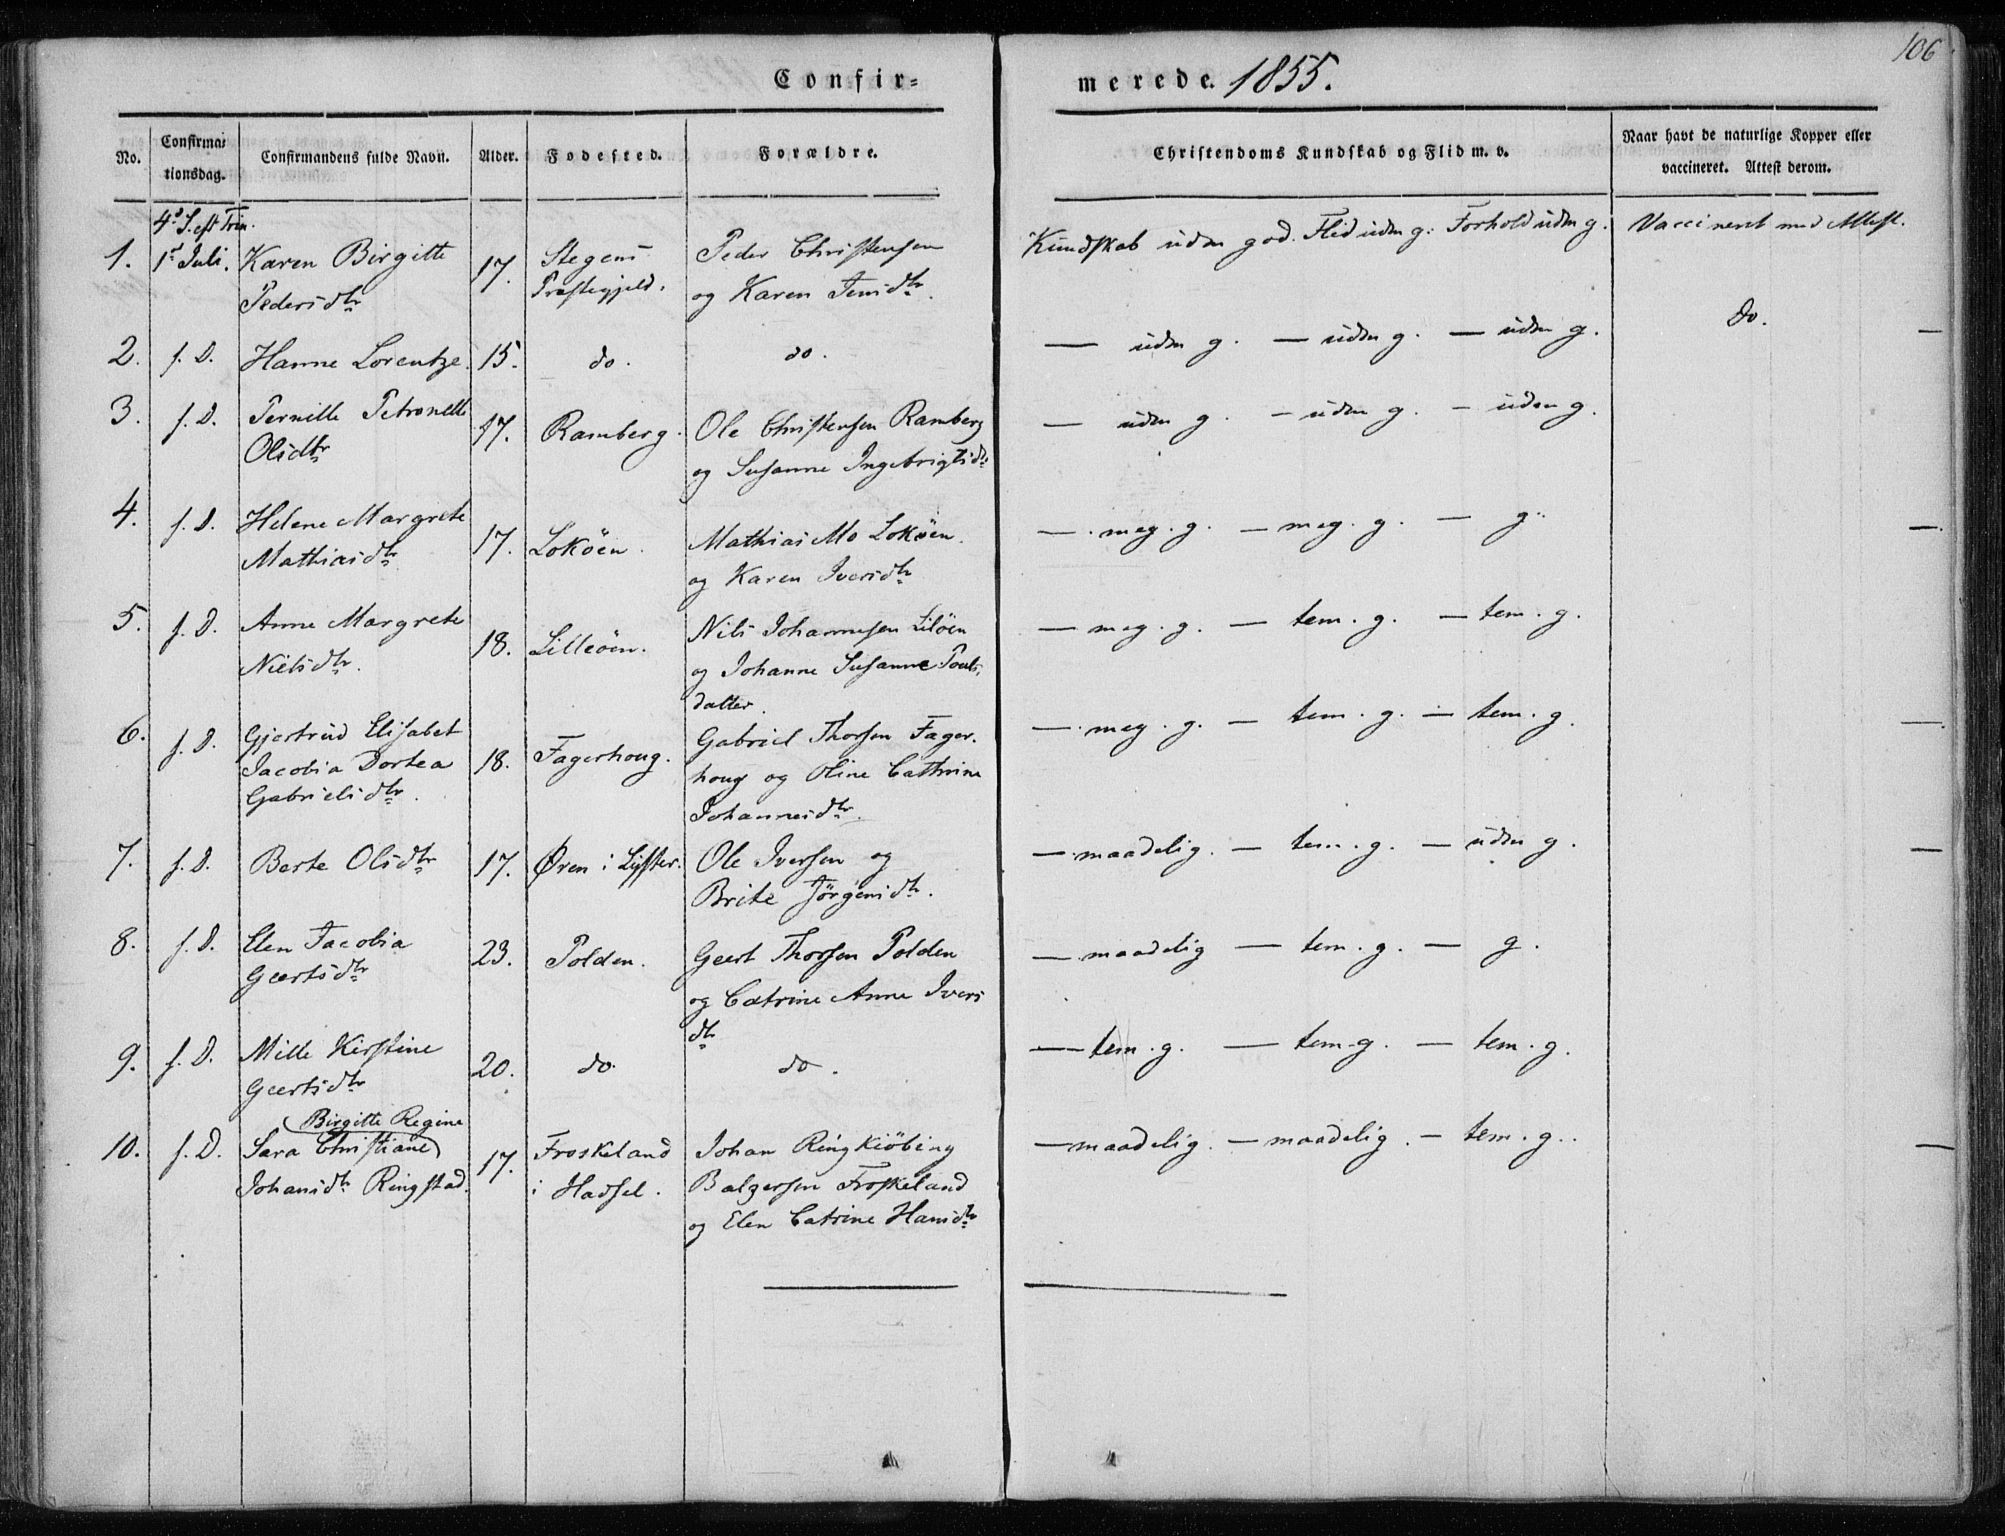 106
Confir=
merede. 1855.
No.
Confirma=
tionsdag.
Confirmandens fulde Navn.
Alder.
Fodested.
Forældre.
Christendoms Kundskab og Flid m. v.
Naar havt de naturlige Kopper eller
vaccineret. Attest derom.
4d S. eft Trin.
1. 1st Juli. Karen Birgitte
Pedersdtr
17. Stegens
Præstegjeld.
Peder Christensen
og Karen Jensdtr.
Kundskab uden god. Flid uden g. Forhold uden g. Vaccineret med Attest.
2. f. D. Hanne Lorentze. 15. do. do.
— uden g. — uden g. — uden g. do. —
3. f. D. Pernille Petronelle
Olsdtr
17. Ramberg. Ole Christensen Ramberg
og Susanne Ingebrigtsd:
— uden g. — uden g. — uden g.
4. f. D. Helene Margrete
Mathiasdtr
17. Lokøen. Mathias Mo Lokøen.
og Karen Iversdtr
— meg. g. — meg. g. — g. —
5. f. D. Anne Margrete
Nielsdtr.
18. Lilleöen. Nils Johannesen Lilöen
og Johanne Susanne Pouls
datter.
— meg. g. — tem. g. — tem. g.
6. f. D. Gjertrud Elisabet
Jacobia Dortea
Gabrielsdtr.
18. Fagerhoug. Gabriel Thorsen Fager.
houg og Oline Cathrine
Johannesdtr.
— meg. g. — tem. g. — tem. g. —
7. f. D. Berte Olsdtr 17. Øren i Lyster. Ole Iversen og
Brite Jørgensdtr.
— maadelig. — tem. g. — uden g. —
8. f. D. Elen Jacobia
Geertsdtr
23. Polden. Geert Thorsen Polden
og Catrine Anne Ivers
dtr
— maadelig — tem. g. — g.
9. f. D. Mille Kirstine
Geertsdtr
20. do. do.
— tem. g. — tem. g. — tem. g.
Birgitte Regine
10. f. D. Sara Christiane
Johansdtr Ringstad.
17. Froskeland
i Hadsel.
Johan Ringkiöbing
Balzersen Froskeland
og Elen Catrine Hansdtr
— maadelig. — maadelig. — tem. g. —